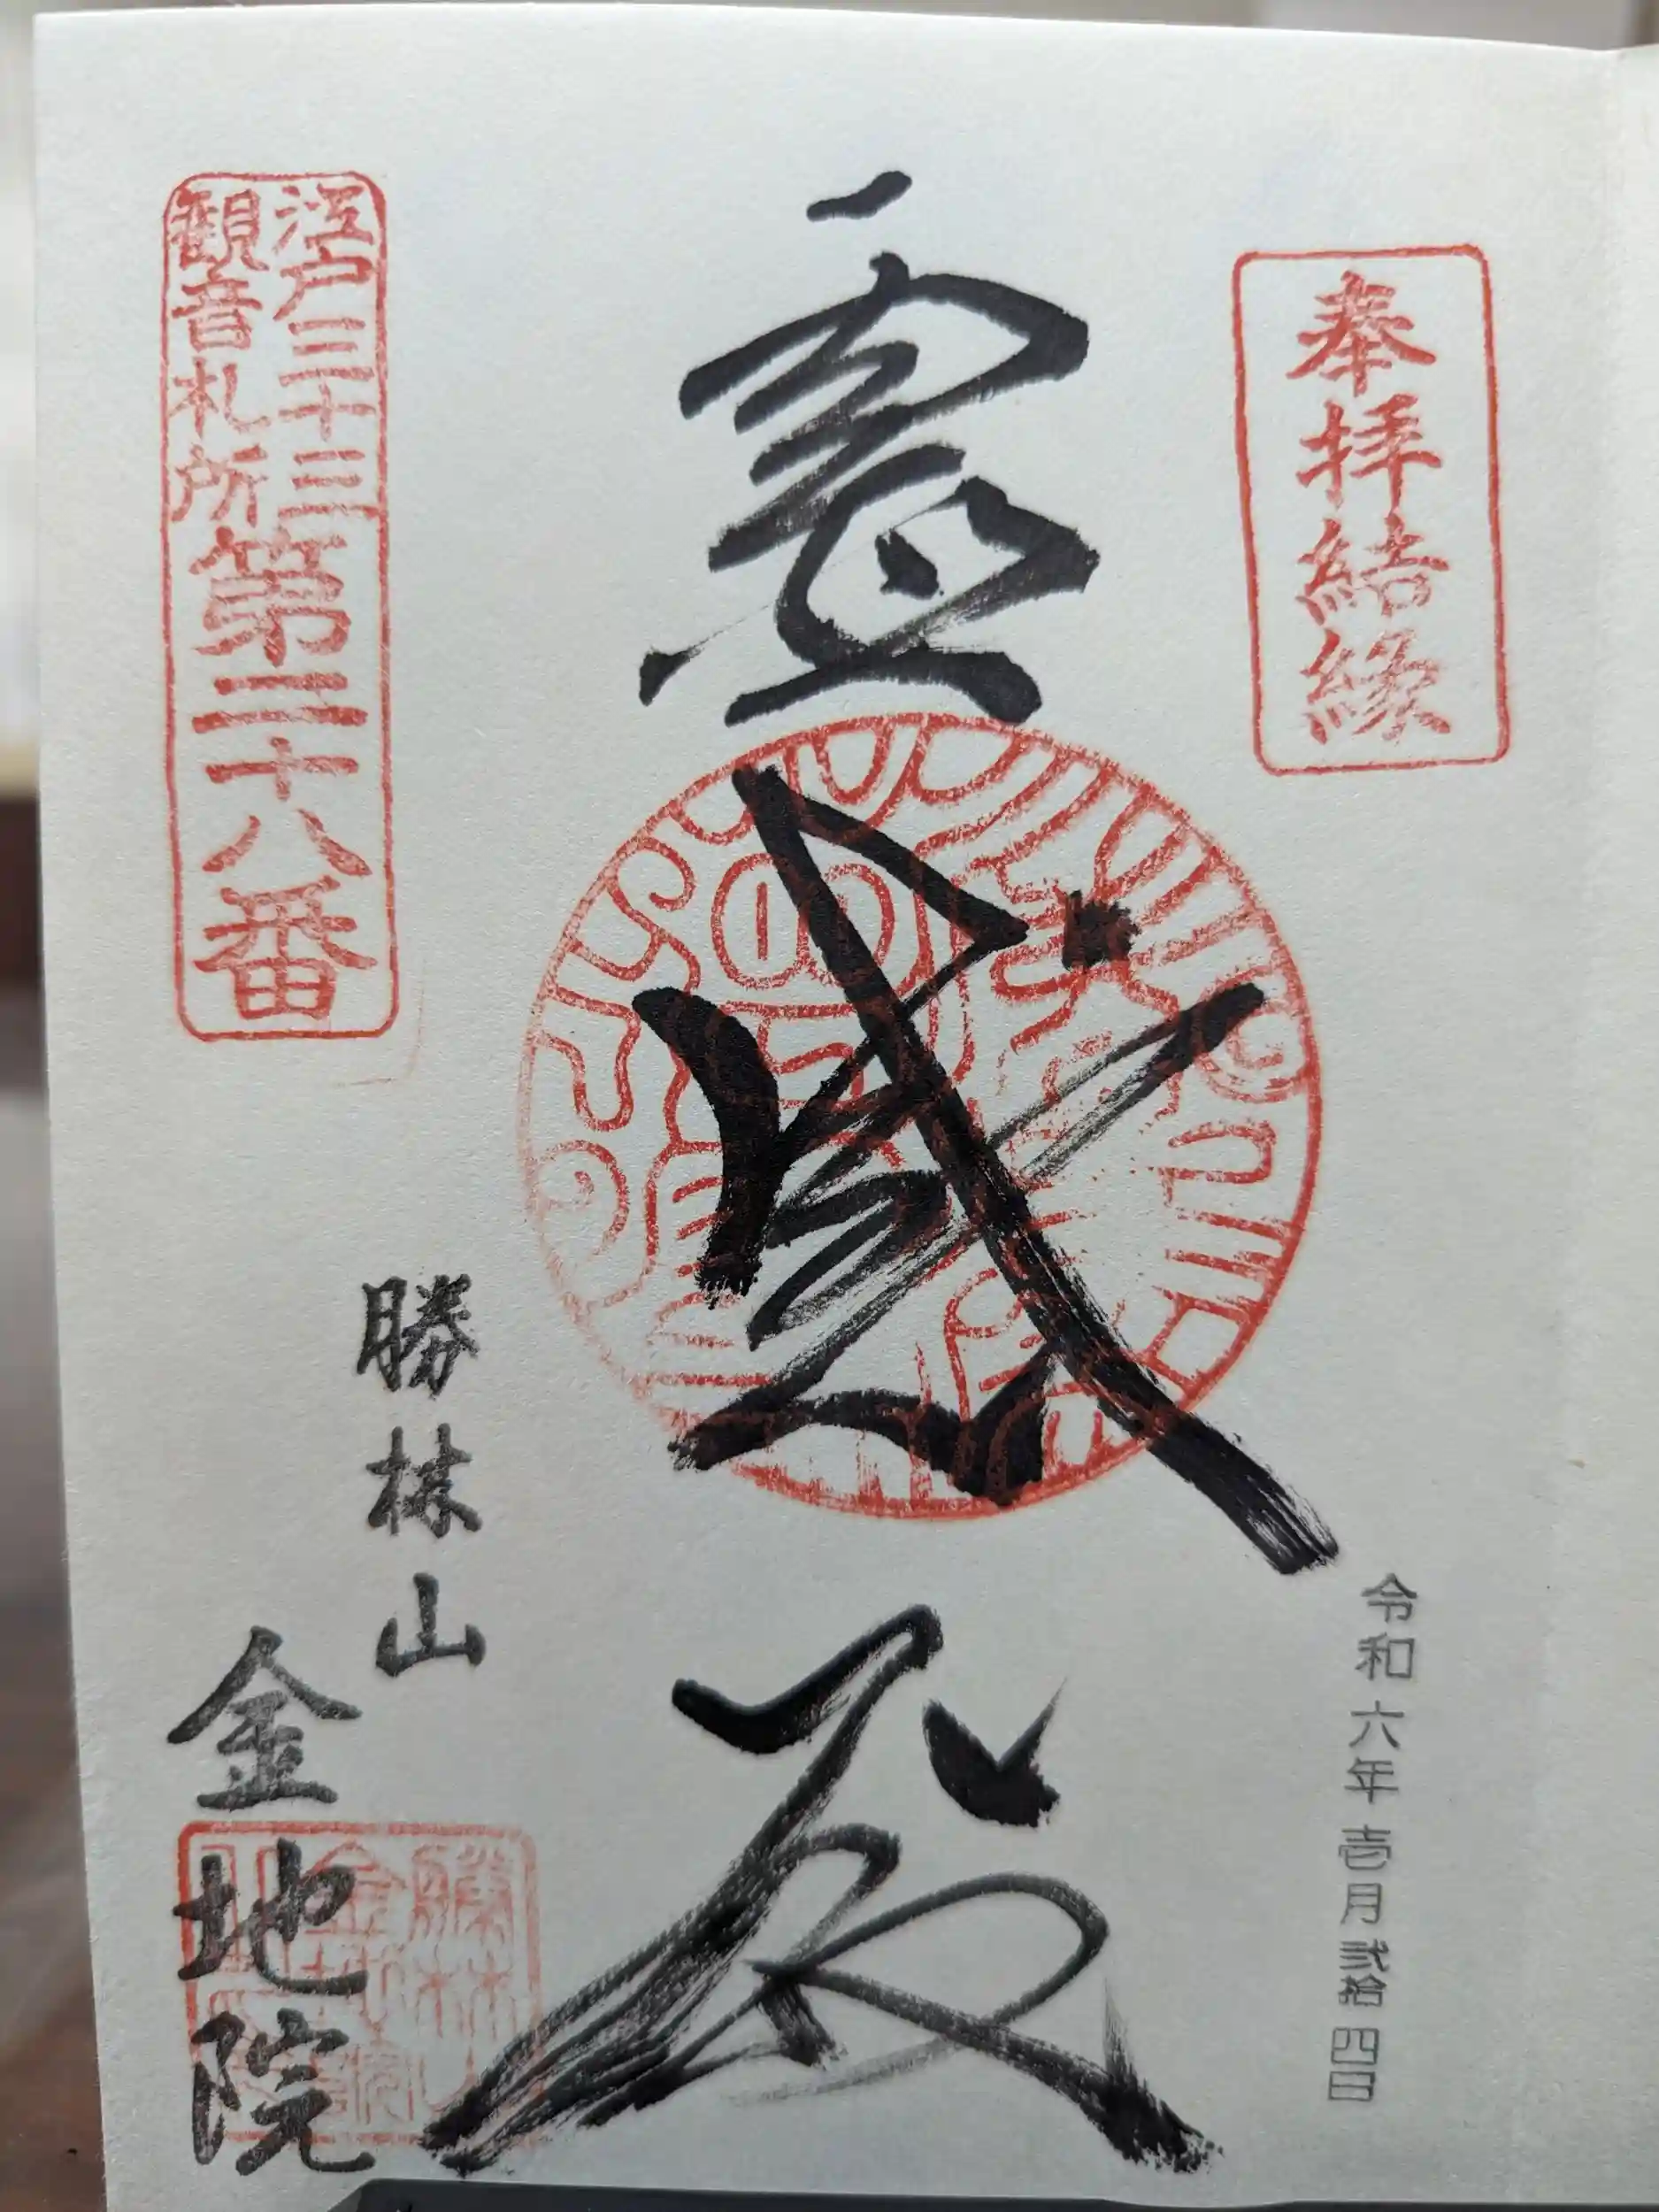 奉拝結縁
令和六年壱月弐拾四日
霊感殿
江戸三十三
観音札所
第二十八番
勝林山
金地院